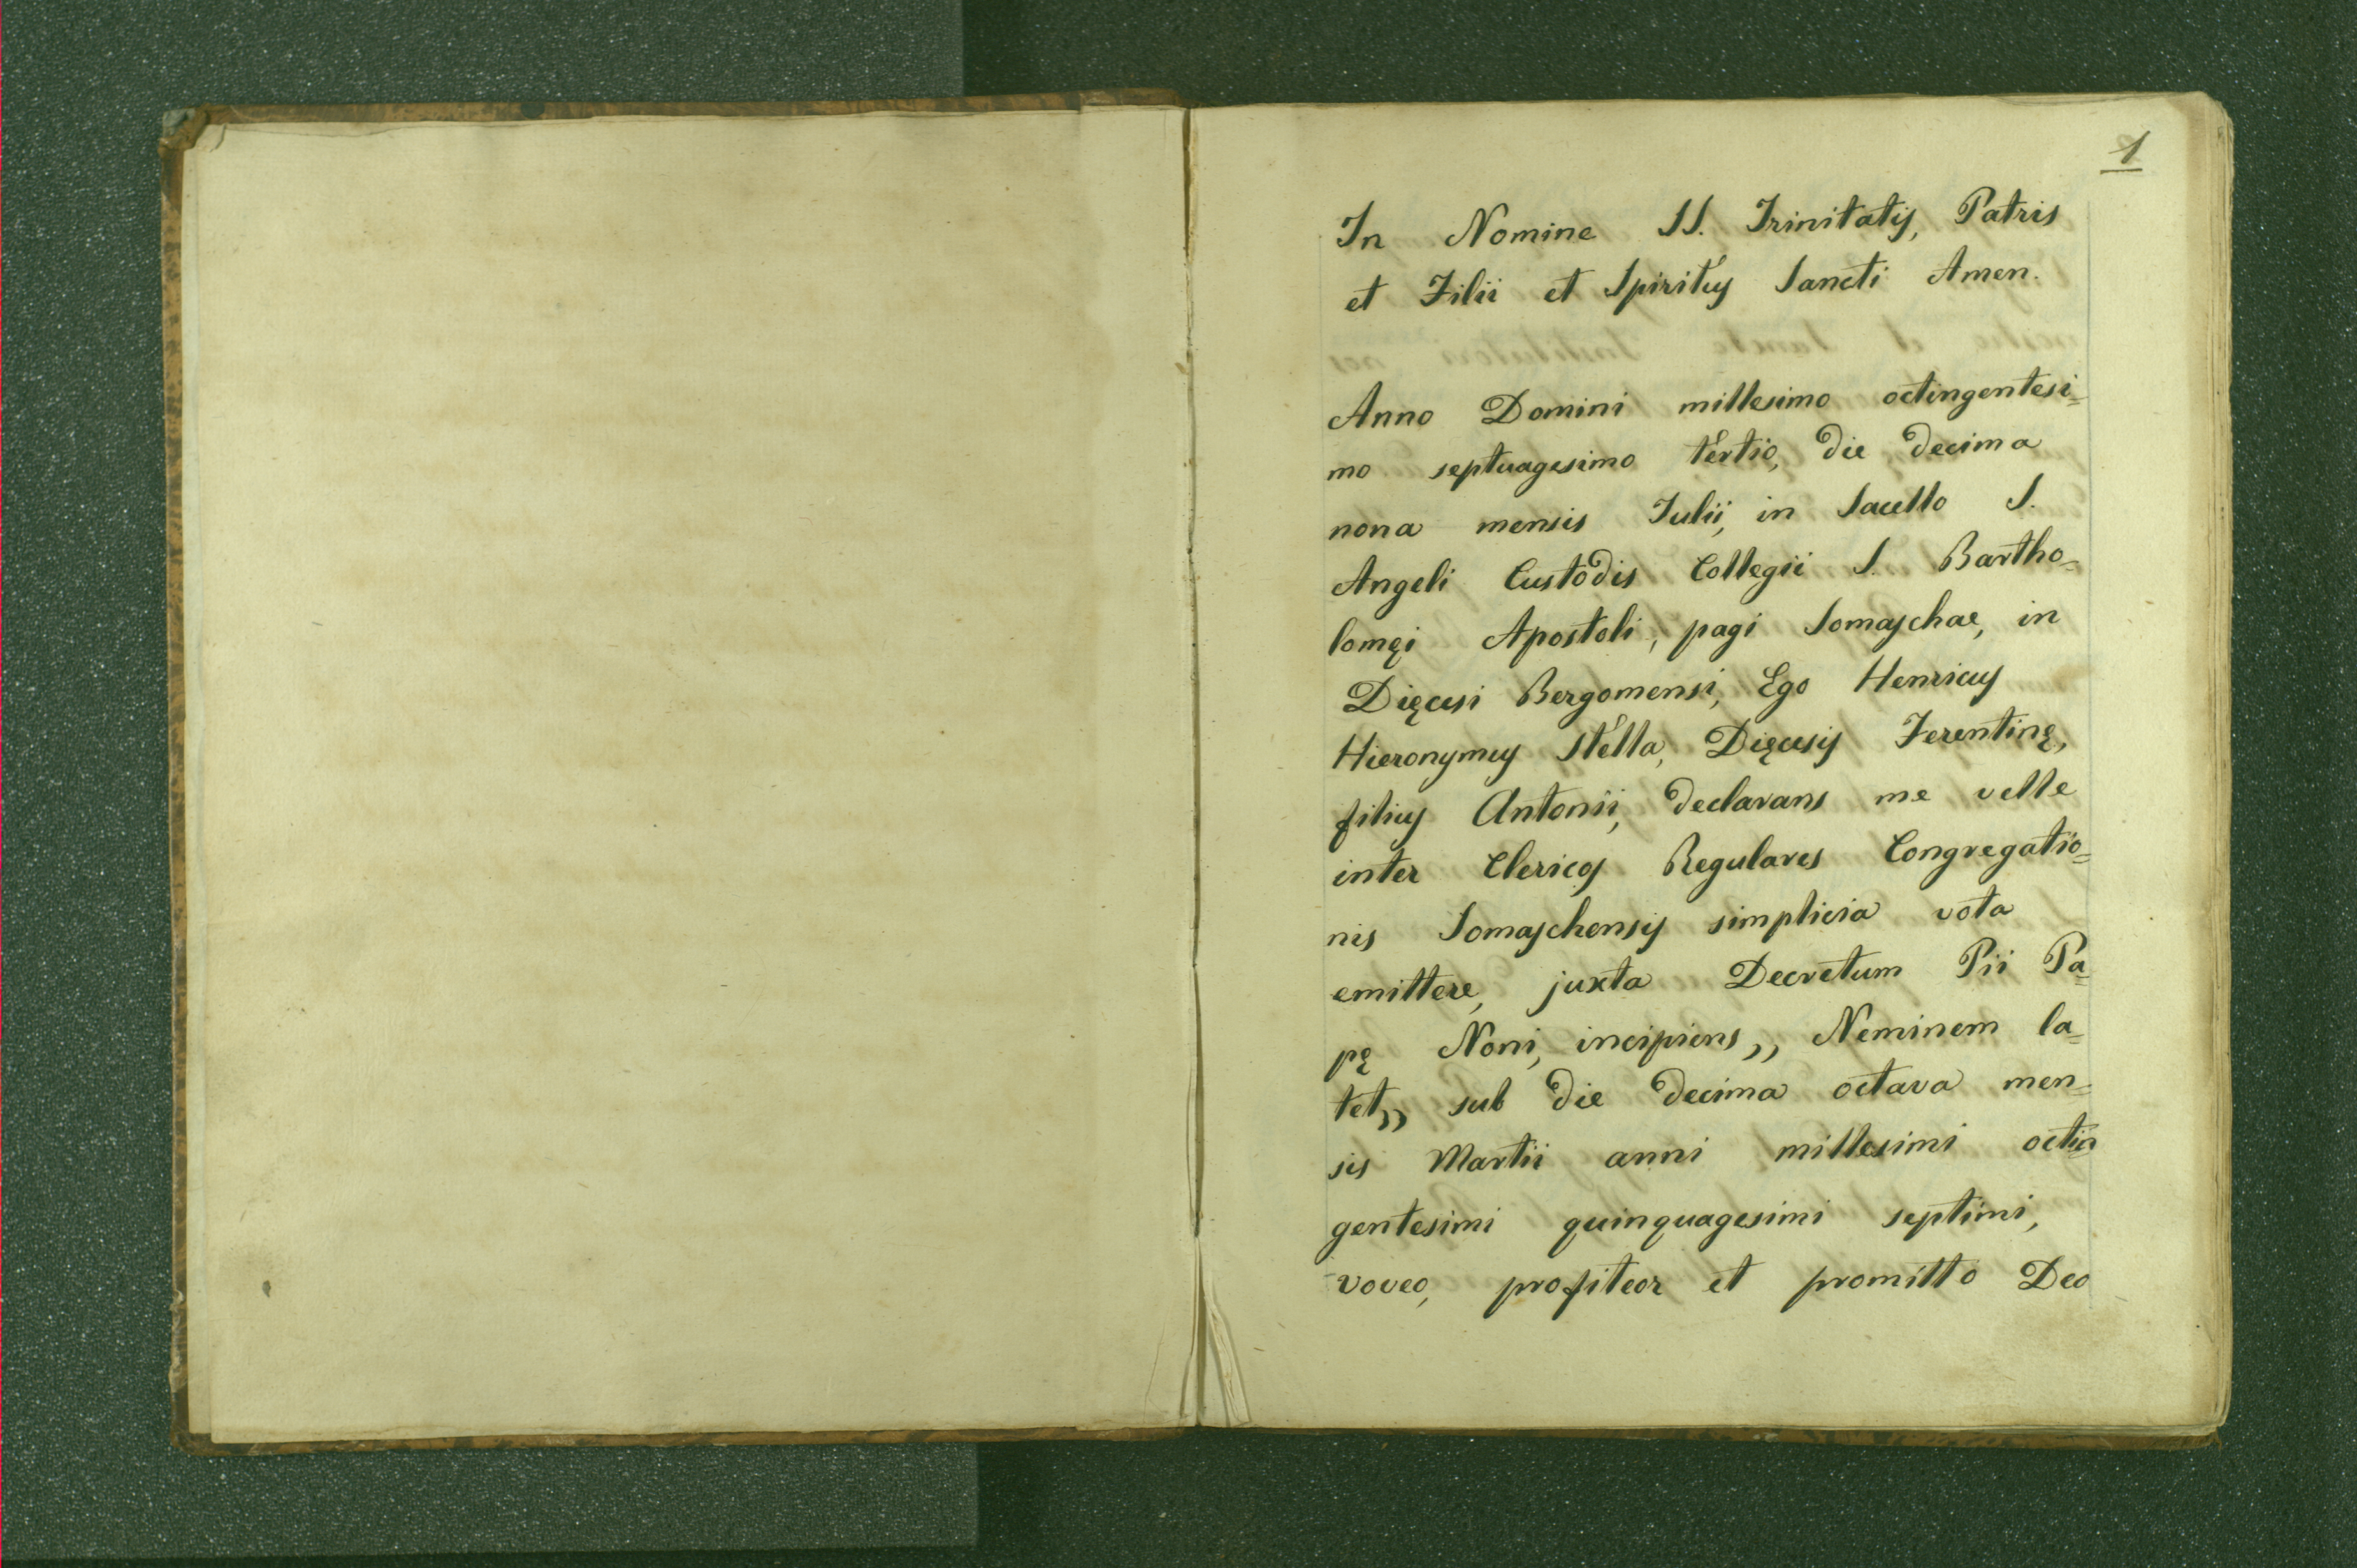 1
In Nomine SS. Trinitatis, Patris
et Filii et Spiritus Sancti Amen.
Anno Domini millesimo octingentesi=
mo septuagesimo tertio, die decima
nona mensis Julii, in Sacello S.
Angeli Custodis Collegii S. Bartho=
lomęi Apostoli, pagi Somaschae, in
Dięcesi Bergomensi, Ego Henricus
Hieronymus Stella, Dięcesis Ferentinę,
filius Antonii, declarans me velle
inter Clericos Regulares Congregatio=
nis Somaschensis simplicia vota
emittere, juxta Decretum Pii Pa=
pę Noni, incipiens,, Neminem la=
tet,, sub die decima octava men=
sis Martii anni millesimi octin=
gentesimi quinquagesimi septimi,
voveo, profiteor et promitto Deo